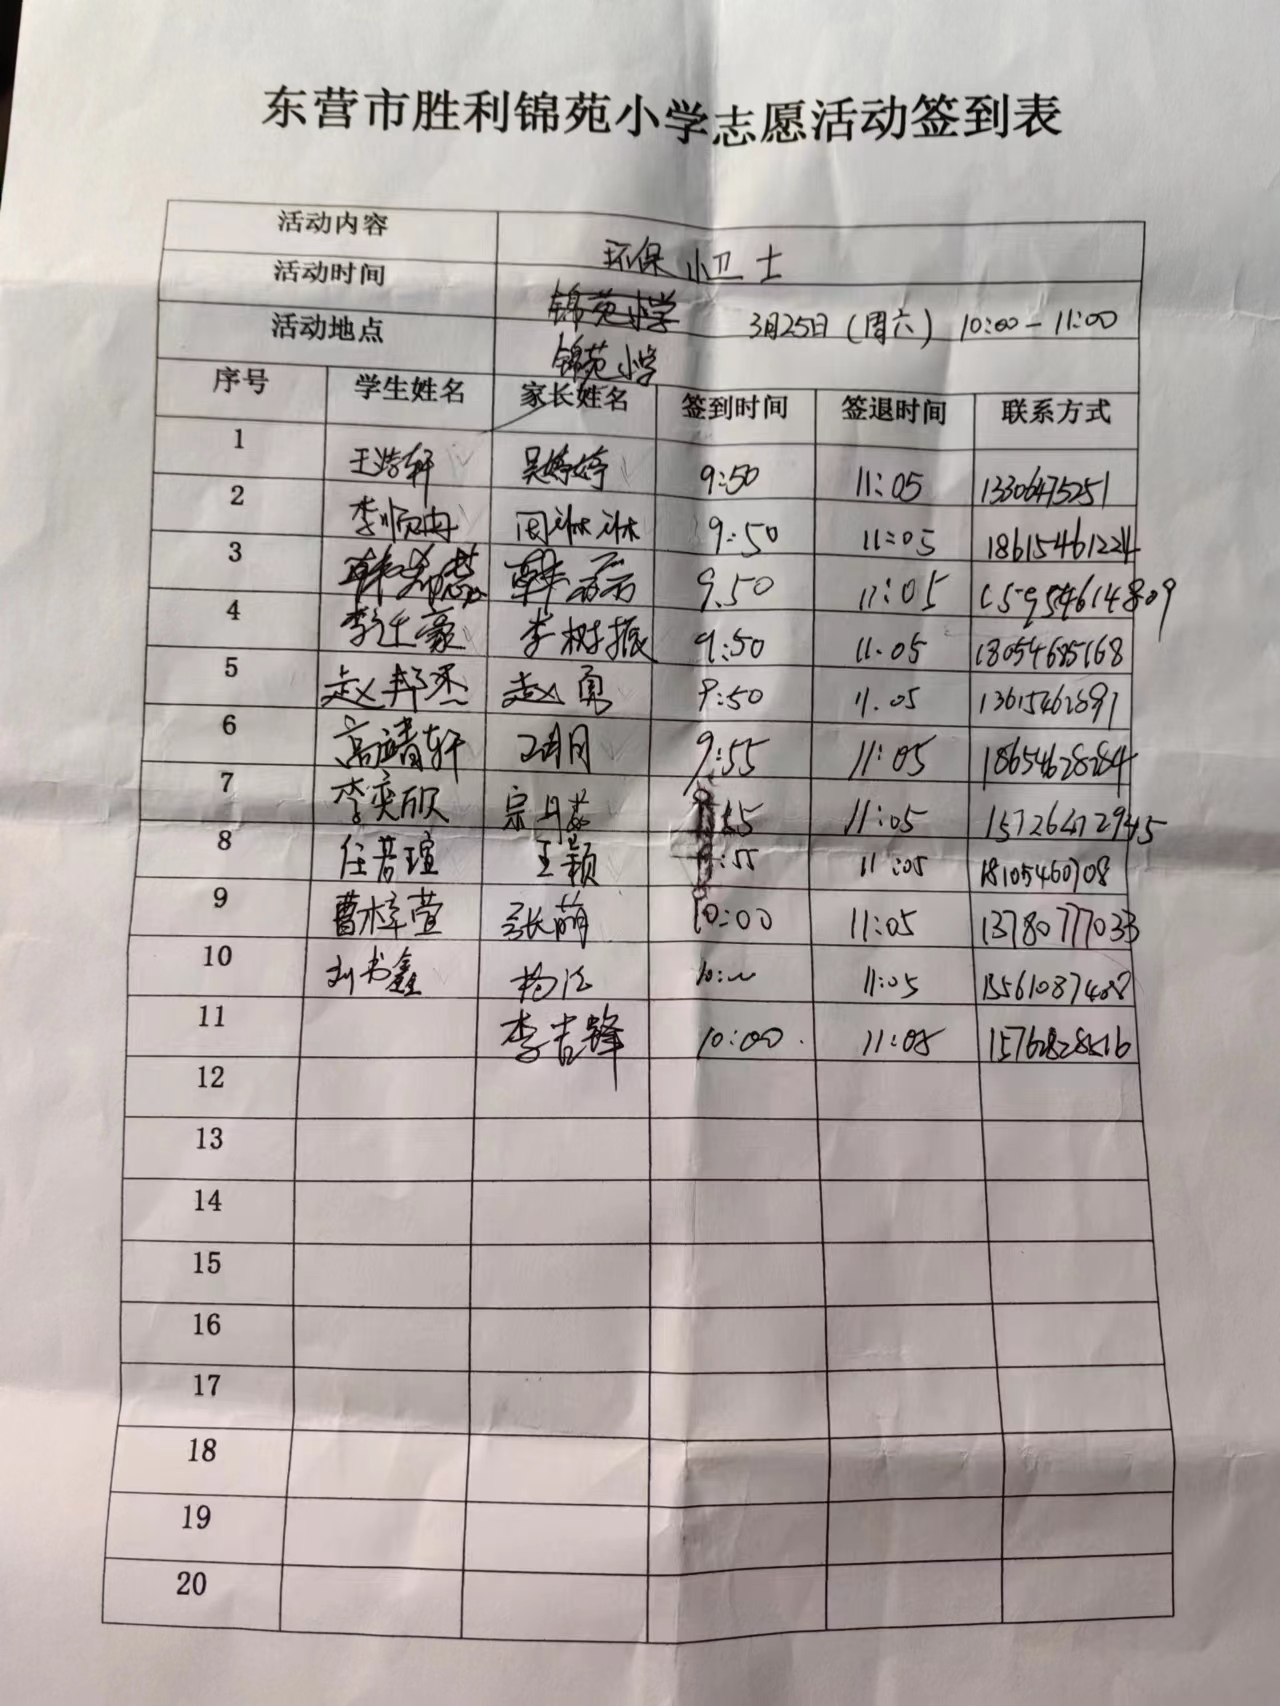 东营市胜利锦苑小学志愿活动签到表
活动内容 环保小卫士
活动时间 锦苑小学 3月25日(周六) 10:00-11:00
活动地点 锦苑小学
序号 学生姓名 家长姓名 签到时间 签退时间 联系方式
1 王浩轩 吴婷婷 9:50 11:05 13306475251
2 9:50 11:05 18615461224
3 9.50 11:05 15954614809
4 李仕豪 李树振 9:50 11.05 18054685168
5 赵邦杰 赵勇 9:50 11.05 13615462891
6 高靖轩 9:55 11:05 18654628284
7 李奕欣 11:05 15726472945
8 任若瑄 王颖 11:05 18105460708
9 曹梓萱 张萌 10:00 11:05 13780777033
10 刘书鑫 11:05
11 李吉锋 10:00 11:05
12
13
14
15
16
17
18
19
20